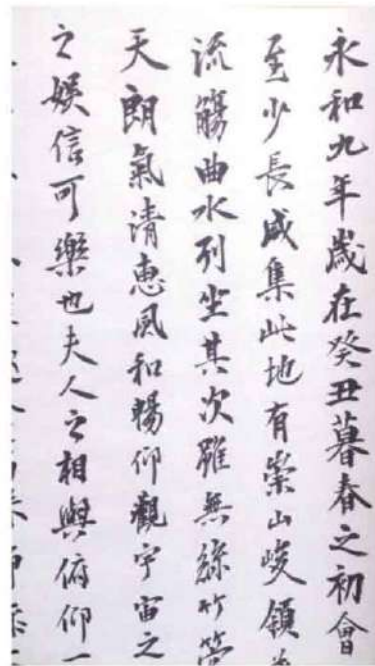 永和九年歲在癸丑暮春之初會
至少長咸集此地有崇山峻領
流觴曲水列坐其次雖無絲竹管
天朗氣清惠風和暢仰觀宇宙之
之娛信可樂也夫人之相與俯仰一